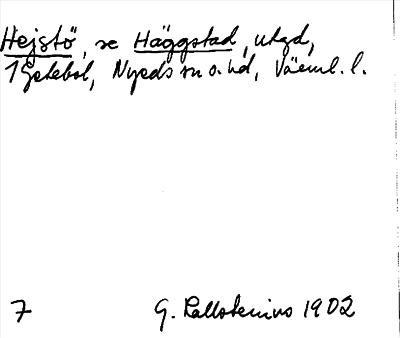 Hejstö, se Häggstad, utgd,
1 Getebol, Nyeds sn o. hd, Värml. l.
7 G. Kallstenius 1902